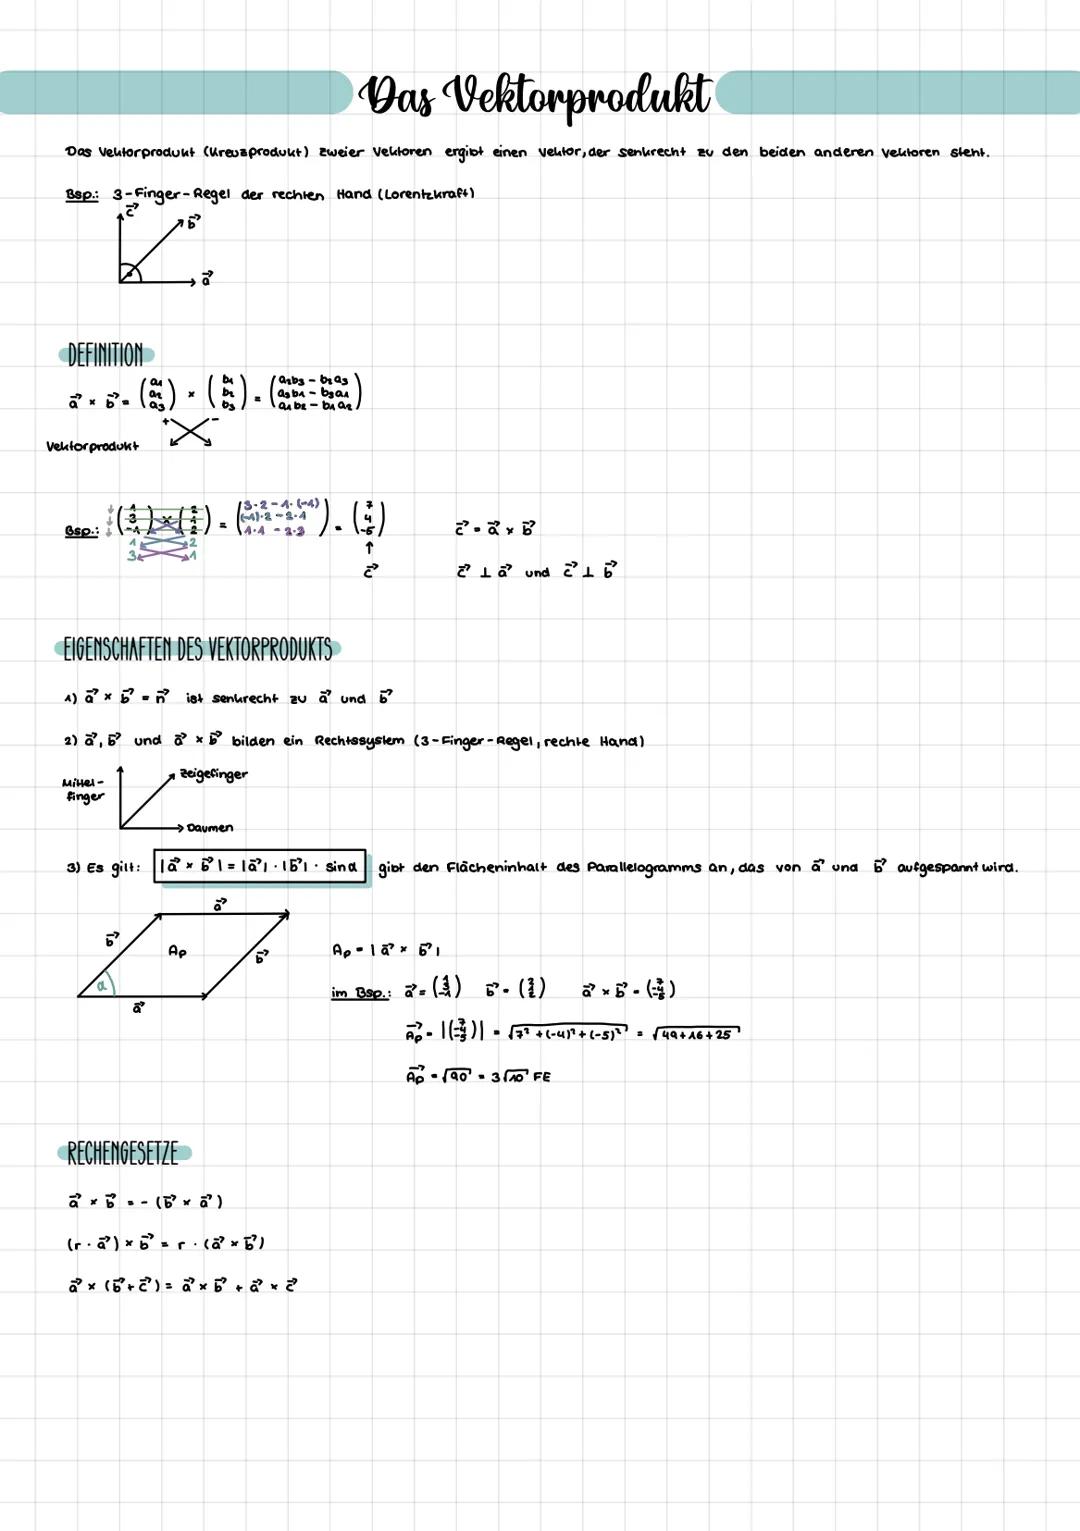 Das Vektorprodukt
Das Vektorprodukt (Kreuzprodukt) zweier Vektoren ergibt einen Vektor, der senkrecht zu den beiden anderen Vektoren steht.
Bsp.: 3-Finger-Regel der rechten Hand (Lorentzkraft)
c⃗
b⃗
a⃗
DEFINITION
a⃗ × b⃗ = (a₁ a₂ a₃) × (b₁ b₂ b₃) = (a₂b₃ - b₂a₃ a₃b₁ - b₃a₁ a₁b₂ - b₁a₂)
+ -
Vektorprodukt
Bsp.: (1 3 -1) × (2 1 2) = (3·2-1·(-1) (-1)·2-2·1 1·1-2·3) = (7 4 -5)
1 2
3 1
↑
c⃗
c⃗ = a⃗ × b⃗
c⃗ ⊥ a⃗ und c⃗ ⊥ b⃗
EIGENSCHAFTEN DES VEKTORPRODUKTS
1) a⃗ × b⃗ = n⃗ ist senkrecht zu a⃗ und b⃗
2) a⃗, b⃗ und a⃗ × b⃗ bilden ein Rechtssystem (3-Finger-Regel, rechte Hand)
Mittel-
finger
Zeigefinger
Daumen
3) Es gilt: |a⃗ × b⃗| = |a⃗| · |b⃗| · sin α gibt den Flächeninhalt des Parallelogramms an, das von a⃗ und b⃗ aufgespannt wird.
a⃗
b⃗
Ap
b⃗
α
a⃗
Ap = |a⃗ × b⃗|
im Bsp.: a⃗ = (1 3 -1) b⃗ = (2 1 2) a⃗ × b⃗ = (7 -4 -5)
A⃗p = |(7 -4 -5)| = √7² + (-4)² + (-5)² = √49+16+25
A⃗p = √90 = 3√10 FE
RECHENGESETZE
a⃗ × b⃗ = - (b⃗ × a⃗)
(r · a⃗) × b⃗ = r · (a⃗ × b⃗)
a⃗ × (b⃗ + c⃗) = a⃗ × b⃗ + a⃗ × c⃗